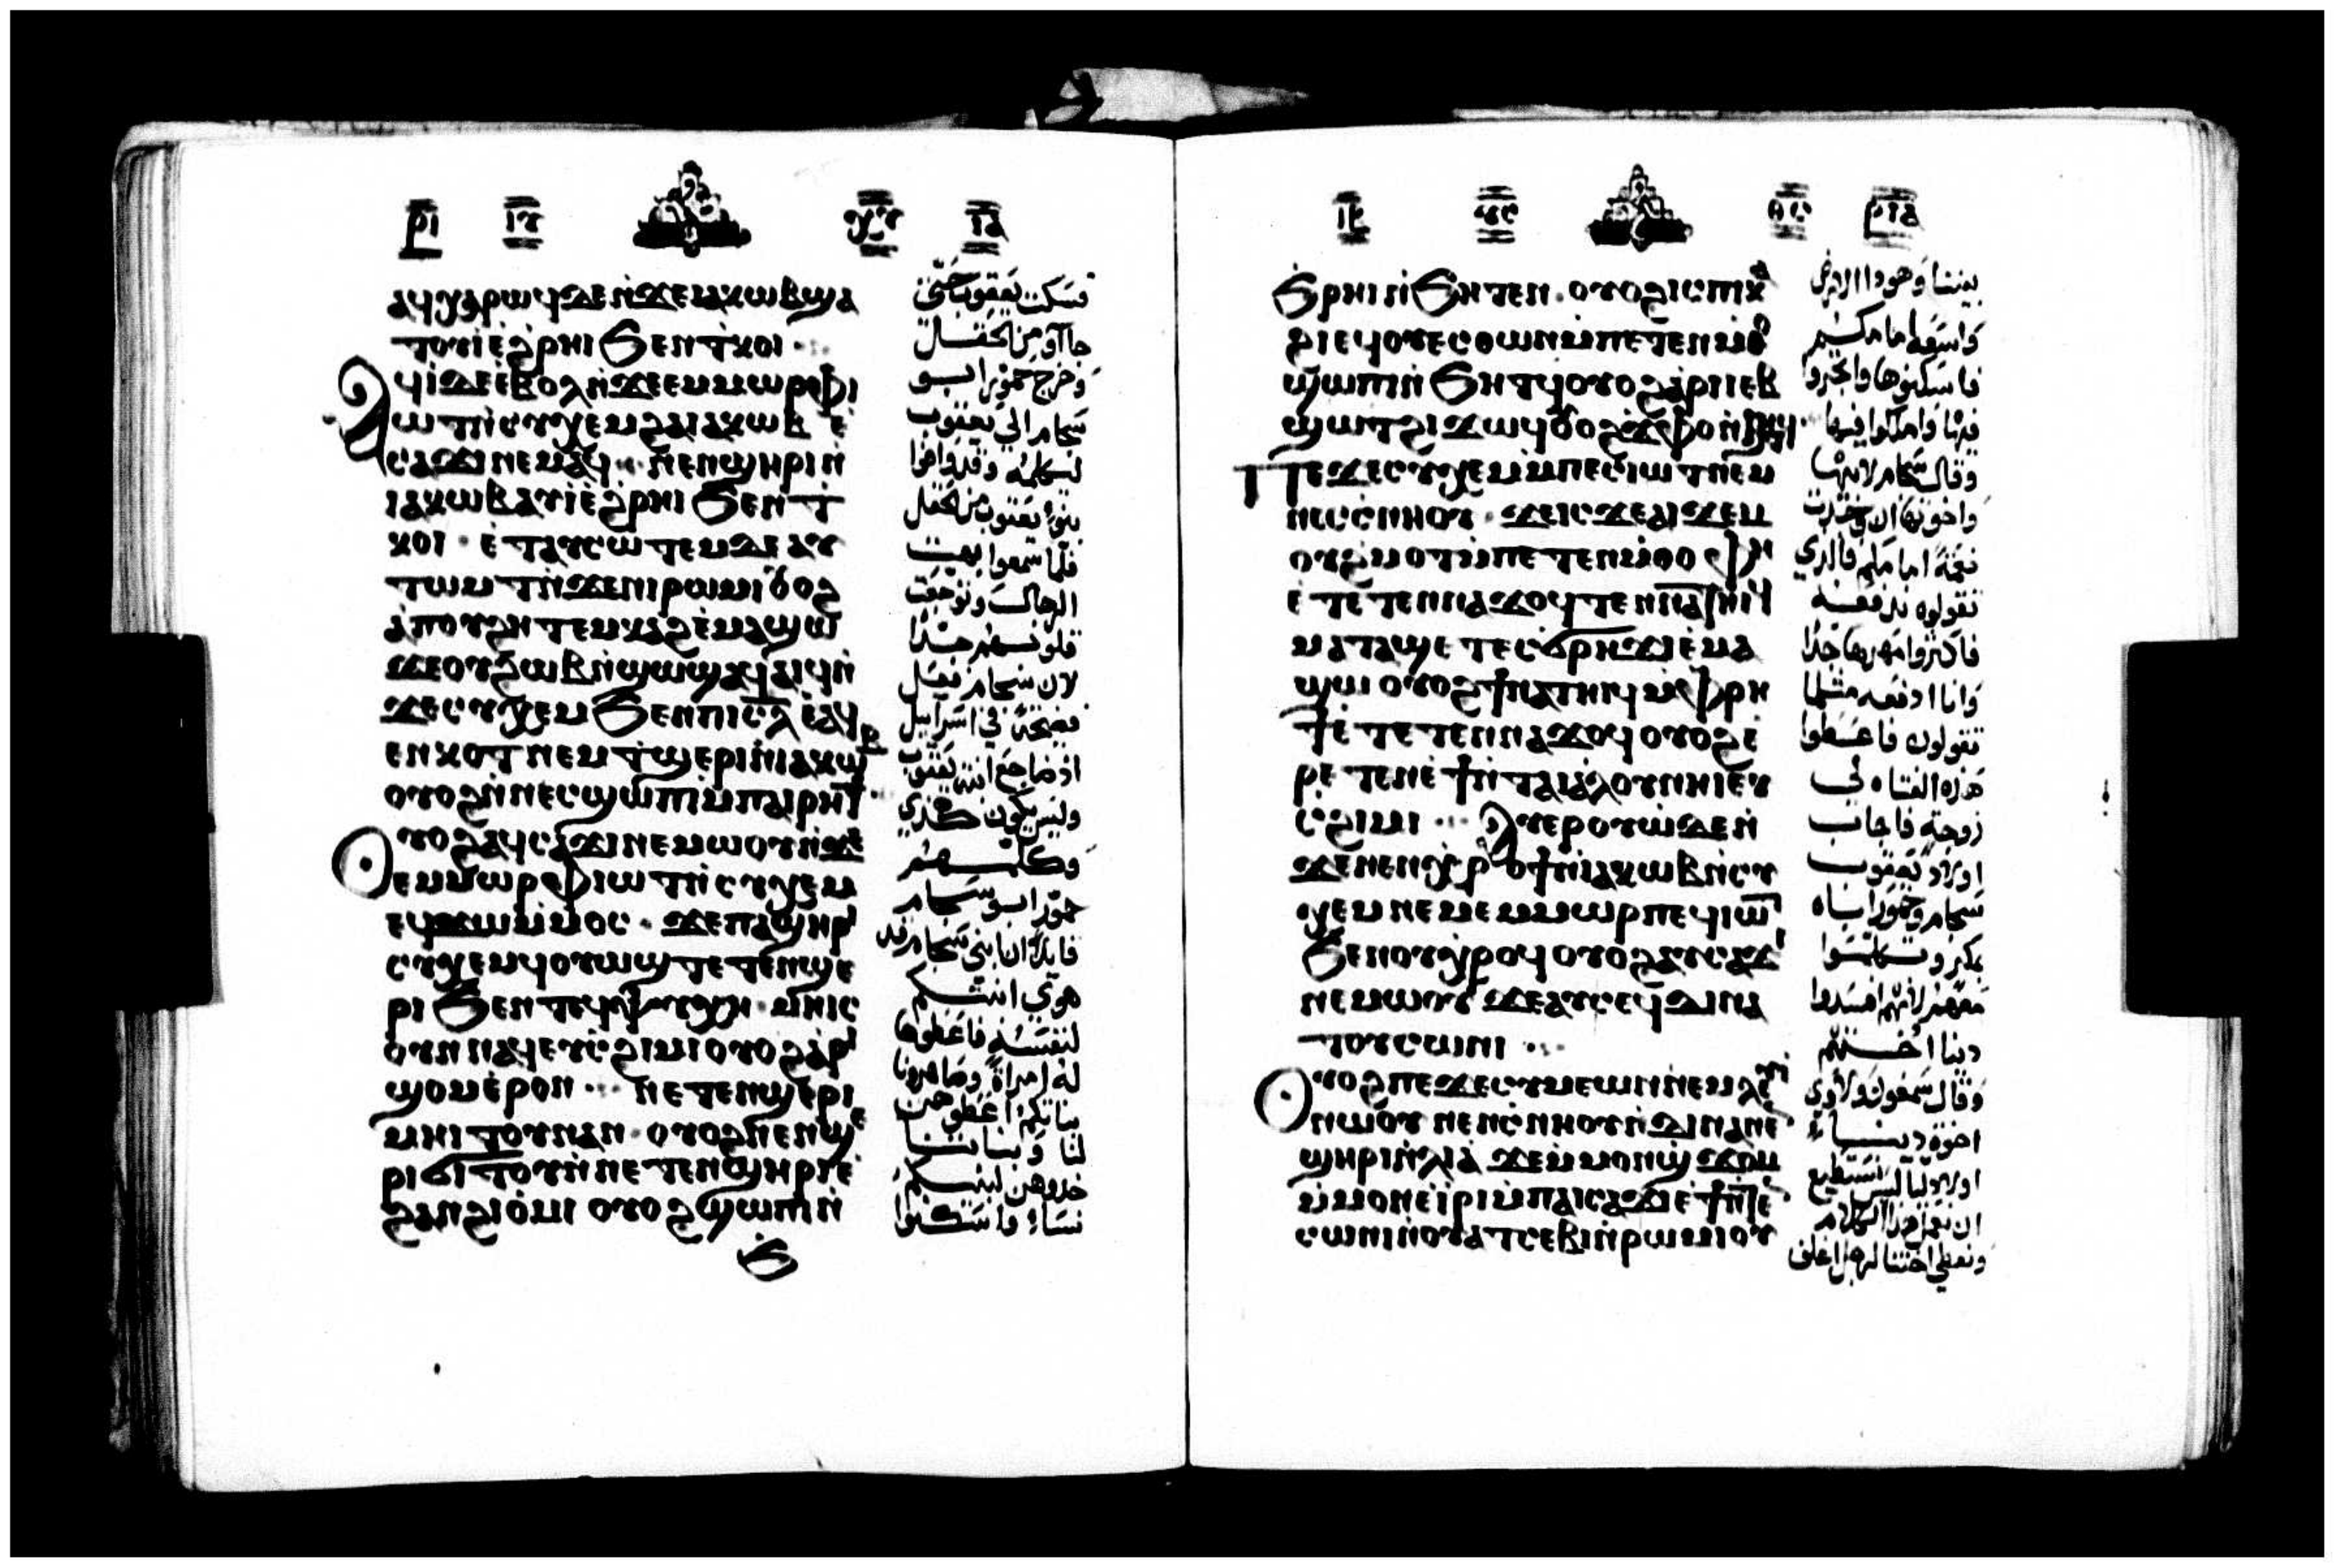 ⲁϥⲭⲁⲣⲱϥ ⲇⲉ ⲛ̀ϫⲉ ⲓⲁⲕⲱⲃ ϣⲁ
ⲧⲟⲩⲓ̀ ⲉ̀ϩⲣⲏⲓ ϧⲉⲛ ⲧⲕⲟⲓ
ⲁϥⲓ̀ ⲇⲉ ⲉ̀ⲃⲟⲗ ⲛ̀ϫⲉ ⲉⲙⲙⲱⲣ ⲫⲓ
ⲱⲧ ⲛ̀ⲥⲩⲭⲉⲙ ϩⲁ ⲓⲁⲕⲱⲃ ⲉ̀
ⲥⲁϫⲓ ⲛⲉⲙⲁϥ ⲛⲉⲛϣⲏⲣⲓ ⲛ̀
ⲓⲁⲕⲱⲃ ⲁⲩⲓ̀ ⲉ̀ϩⲣⲏⲓ ϧⲉⲛ ⲧ
ⲕⲟⲓ ⲉ̀ⲧⲁⲩⲥⲱⲧⲉⲙ ⲇⲉ ⲁⲩ
ⲧⲱⲙⲧ ⲛ̀ϫⲉ ⲛⲓⲣⲱⲙⲓ ⲟⲩⲟϩ
ⲁ̀ ⲡⲟⲩϩⲏⲧ ⲉⲙⲕⲁϩ ⲉ̀ⲙⲁϣⲱ
ϫⲉ ⲟⲩϩⲱⲃ ⲛ̀ϣⲱϣ ⲁϥⲁⲓϥ ⲛ̀
ϫⲉ ⲥⲩⲭⲉⲙ ϧⲉⲛ ⲡⲓⲥ̅ⲗ̅ ⲉ̀ⲁϥ
ⲉⲛⲕⲟⲧ ⲛⲉⲙ ⲧϣⲉⲣⲓ ⲛ̀ⲓⲁⲕⲱⲃ
ⲟⲩⲟϩ ⲛ̀ⲛⲉⲥϣⲱⲡⲓ ⲙ̀ⲡⲁⲓⲣⲏϯ
ⲟⲩⲟϩ ⲁϥⲥⲁϫⲓ ⲛⲉⲙⲱⲟⲩ ⲛ̀ϫ
ⲉⲙⲙⲱⲣ ⲫⲓⲱⲧ ⲛ̀ⲥⲩⲭⲉⲙ
ⲉϥϫⲱ ⲙ̀ⲙⲟⲥ ϫⲉ ⲡⲁϣⲏⲣⲓ
ⲥⲩⲭⲉⲙ ϥⲟⲩⲱϣ ⲧⲉⲧⲉⲛϣⲉ
ⲣⲓ ϧⲉⲛ ⲧⲉϥⲯⲩⲭⲏ ⲙⲏⲓⲥ
ⲟⲩⲛ ⲛⲁϥ ⲉⲩⲥϩⲓⲙⲓ ⲟⲩⲟϩ ⲁⲣⲓ
ϣⲟⲙ ⲉ̀ⲣⲟⲛ ⲛⲉⲧⲉⲛϣⲉⲣⲓ
ⲙⲏⲓⲧⲟⲩ ⲛⲁⲛ ⲟⲩⲟϩ ⲛⲉⲛϣⲉ
ⲣⲓ ϭⲓⲧⲟⲩ ⲛ̀ⲛⲉⲧⲉⲛϣⲏⲣⲓ ⲉ̀
ϩⲁⲛϩⲓⲟ̀ⲙⲓ ⲟⲩⲟϩ ϣⲱⲡⲓ ⲛ̀
ϧ
فسكت يعقوب حتى
جاآو من الحقل
وخرج حمور ابو
شحام الى يعقوب
ليكلمه وقد وافوا
بنو يعقوب من الحقل
فلما سمعوا بهت
الرجال وتوجعت
قلوبهم جدا
لان شحام فعل
فضيحة في اسراييل
اذ ضاجع ابنت يعقوب
وليس يكون كذي
وكلمهم
حمور ابو شحام
قايلا ان ابني شحام قد
هوي ابنتكم
لنفسه فاعطوها
له امراة وصاهرونا
بناتكم اعطوهن
لنا وبناتنا
خذوهن لبنيكم
نساء واسكنوا
ϧⲣⲏⲓ ⲛ̀ϧⲏⲧⲉⲛ ⲟⲩⲟϩ ⲓⲥ ⲡⲓⲕⲁ
ϩⲓ ϥⲟⲩⲉⲥⲑⲱⲛ ⲙ̀ⲡⲉⲧⲉⲛⲙ̀ⲑⲟ
ϣⲱⲡⲓ ⲛ̀ϧⲏⲧϥ ⲟⲩⲟϩ ⲁ̀ⲣⲓⲉⲃ
ϣⲱⲧ ϩⲓϫⲱϥ ⲟⲩⲟϩ ϫⲫⲟ ⲛ̀ϧⲏⲧϥ
ⲡⲉϫⲉ ⲥⲩⲭⲉⲙ ⲙ̀ⲡⲉⲥⲓⲱⲧ ⲛⲉⲙ
ⲛⲉⲥⲥⲛⲏⲟⲩ ϫⲉ ⲓⲥϫⲉ ⲁⲓϫⲉⲙ
ⲟⲩϩ̀ⲙⲟⲧ ⲙ̀ⲡⲉⲧⲉⲛⲙ̀ⲑⲟ ⲫⲏ
ⲉ̀ⲧⲉⲧⲉⲛⲛⲁϫⲟϥ ⲧⲉⲛⲛⲁⲧⲏⲓϥ
ⲙⲁⲧⲁϣⲉ ⲧⲉⲥϭⲣⲏϫⲓ ⲉ̀ⲙⲁ
ϣⲱ ⲟⲩⲟϩ ϯⲛⲁⲧⲏⲓϥ ⲙ̀ⲫⲣⲏ
ϯ ⲉⲧⲉⲧⲉⲛⲛⲁϫⲟϥ ⲟⲩⲟϩ ⲉ̀
ⲣⲉⲧⲉⲛⲉ̀ϯ ⲛ̀ⲧⲁⲓⲁ̀ⲗⲟⲩ ⲛⲏⲓ ⲉⲩ
ⲥϩⲓⲙⲓ ⲁⲩⲉⲣⲟⲩⲱ̀ ⲇⲉ ⲛ̀
ϫⲉ ⲛⲉⲛϣⲏⲣⲓ ⲛ̀ⲓⲁⲕⲱⲃ ⲛ̀ⲥⲩ
ⲭⲉⲙ ⲛⲉⲙ ⲉⲙⲙⲱⲣ ⲡⲉϥⲓⲱⲧ
ϧⲉⲛ ⲟⲩⲭⲣⲟϥ ⲟⲩⲟϩ ⲁⲩⲥⲁϫⲓ
ⲛⲉⲙⲱⲟⲩ ϫⲉ ⲁⲩⲥⲉϥ ⲇⲓⲛⲁ
ⲧⲟⲩⲥⲱⲛⲓ
ⲟⲩⲟϩ ⲡⲉϫⲉ ⲥⲩⲙⲉⲱⲛ ⲛⲉⲙ ⲗⲉⲩⲓ
ⲛⲱⲟⲩ ⲛⲉⲛⲥⲛⲏⲟⲩ ⲛ̀ⲇⲓⲛⲁ ⲛⲉ
ϣⲏⲣⲓ ⲛ̀ⲗⲓⲁ ϫⲉ ⲙ̀ⲙⲟⲛ ϣϫⲟⲙ
ⲙ̀ⲙⲟⲛ ⲉ̀ⲓⲣⲓ ⲙ̀ⲡⲁⲓⲥⲁϫⲓ ⲉ̀ϯ ⲛ̀ⲧⲉ
ⲥⲱⲛⲓ ⲛ̀ⲟⲩⲁⲧⲥⲉⲃⲓ ⲛ̀ⲣⲱⲙⲓ ⲟⲩ
بيننا وهوذا الارض
واسعة امامكم
فاسكنوها واتجروا
فيها وامتلكوا فيها
وقال شحام لابيها
واخوتها ان وجدت
نعمة امامكم فالذي
تقولوه ندفعه
فاكثروا مهرها جدا
وانا ادفعه مثلما
تقولون فاعطوا
هذه الفتاه لي
زوجة فاجاب
اولاد يعقوب
شحام وحمور اباه
بمكر وتكلموا
معهم لانهم افسدوا
دينا اختهم
وقال شمعون ولاوي
اخوة دينا
اولاد ليا ليس نستطيع
ان نفعل هذا الكلام
ونعطي اختنا لرجل اغلف